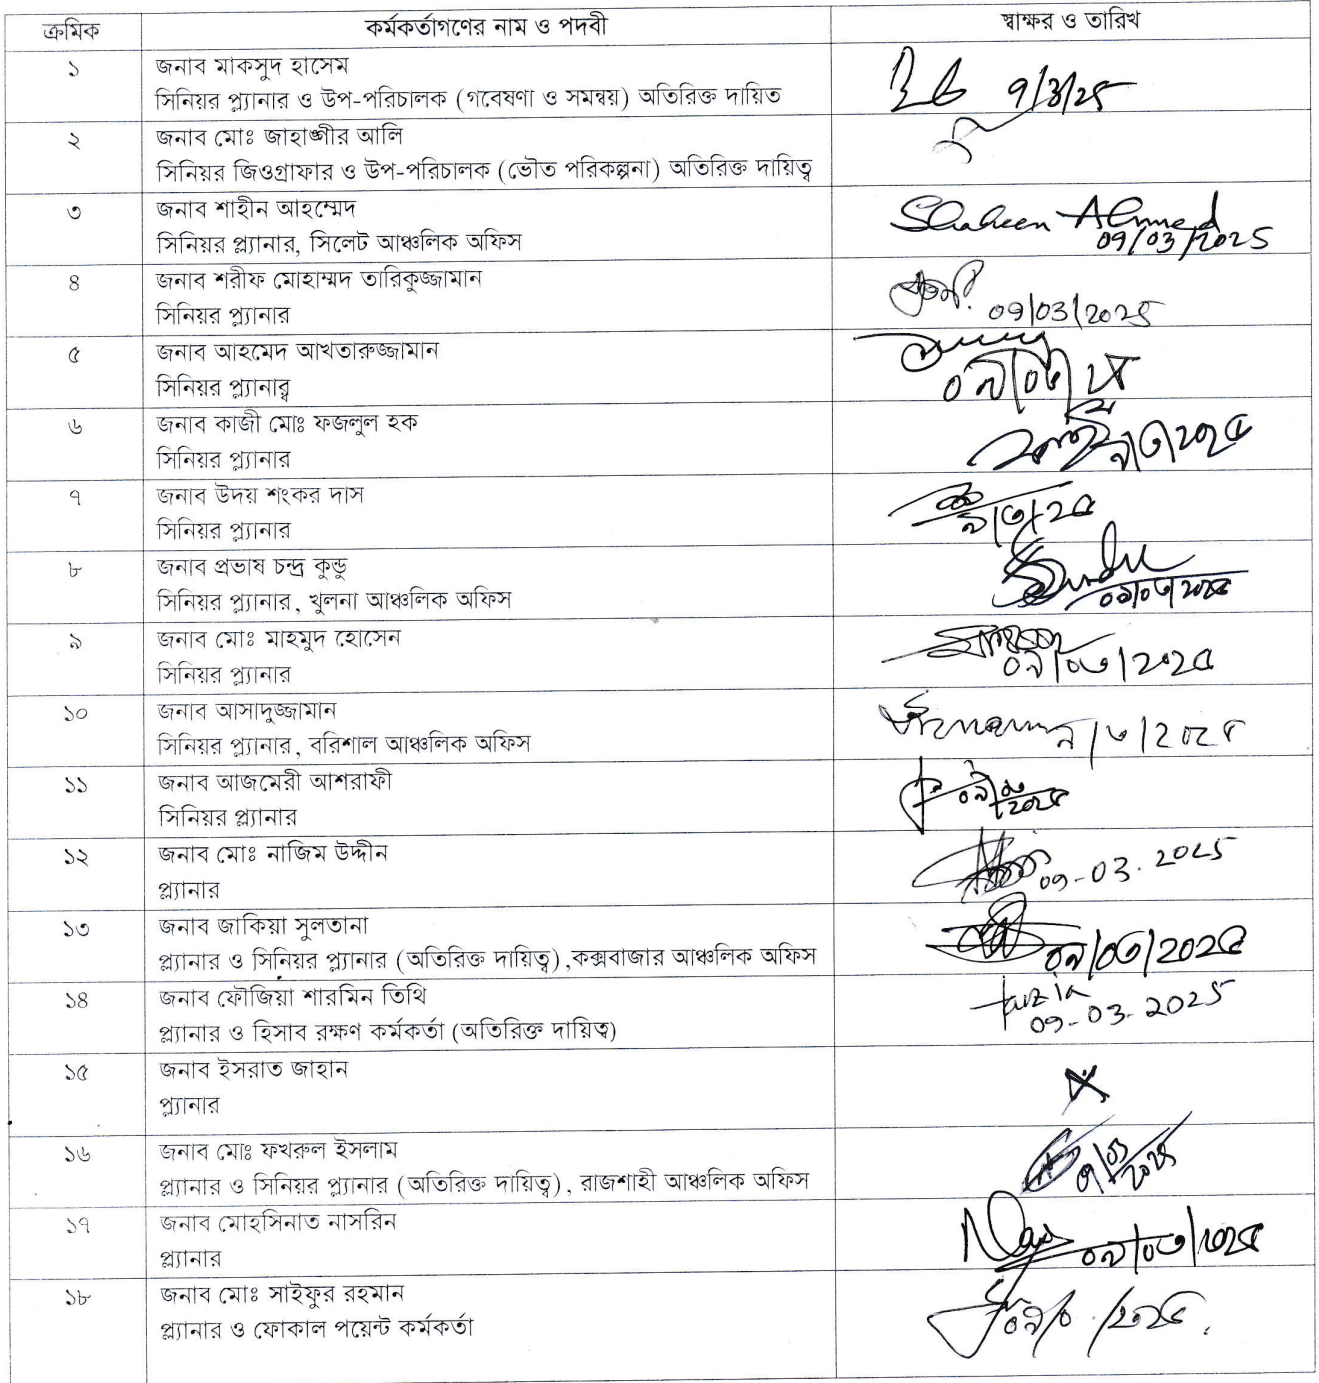 ক্রমিক কর্মকর্তাগণের নাম ও পদবী স্বাক্ষর ও তারিখ
১ জনাব মাকসুদ হাসেম
সিনিয়র প্ল্যানার ও উপ-পরিচালক (গবেষণা ও সমন্বয়) অতিরিক্ত দায়িত
9/3/25
২ জনাব মোঃ জাহাঙ্গীর আলি
সিনিয়র জিওগ্রাফার ও উপ-পরিচালক (ভৌত পরিকল্পনা) অতিরিক্ত দায়িত্ব
৩ জনাব শাহীন আহম্মেদ
Shaheen Ahmed
সিনিয়র প্ল্যানার, সিলেট আঞ্চলিক অফিস
09/03/2025
৪ জনাব শরীফ মোহাম্মদ তারিকুজ্জামান
সিনিয়র প্ল্যানার
09/03/2025
৫ জনাব আহমেদ আখতারুজ্জামান
সিনিয়র প্ল্যানার্
০৯/০৩/২৫
৬ জনাব কাজী মোঃ ফজলুল হক
সিনিয়র প্ল্যানার
৯/৩/২০২৫
৭ জনাব উদয় শংকর দাস
সিনিয়র প্ল্যানার
৯/৩/২৫
৮ জনাব প্রভাষ চন্দ্র কুন্ডু
সিনিয়র প্ল্যানার, খুলনা আঞ্চলিক অফিস
০৯/০৩/২০২৫
৯ জনাব মোঃ মাহমুদ হোসেন
সিনিয়র প্ল্যানার
০৯/০৩/২০২৫
১০ জনাব আসাদুজ্জামান
সিনিয়র প্ল্যানার, বরিশাল আঞ্চলিক অফিস
৯/৩/২০২৫
১১ জনাব আজমেরী আশরাফী
সিনিয়র প্ল্যানার
২০২৫
১২ জনাব মোঃ নাজিম উদ্দীন
প্ল্যানার
09-03.2025
১৩ জনাব জাকিয়া সুলতানা
প্ল্যানার ও সিনিয়র প্ল্যানার (অতিরিক্ত দায়িত্ব),কক্সবাজার আঞ্চলিক অফিস
০৯/০৩/২০২৫
১৪ জনাব ফৌজিয়া শারমিন তিথি
fauzia
প্ল্যানার ও হিসাব রক্ষণ কর্মকর্তা (অতিরিক্ত দায়িত্ব)
09-03-2025
১৫ জনাব ইসরাত জাহান
প্ল্যানার
১৬ জনাব মোঃ ফখরুল ইসলাম
প্ল্যানার ও সিনিয়র প্ল্যানার (অতিরিক্ত দায়িত্ব), রাজশাহী আঞ্চলিক অফিস
১৭ জনাব মোহসিনাত নাসরিন
প্ল্যানার
০৯/০৩/২০২৫
১৮ জনাব মোঃ সাইফুর রহমান
প্ল্যানার ও ফোকাল পয়েন্ট কর্মকর্তা